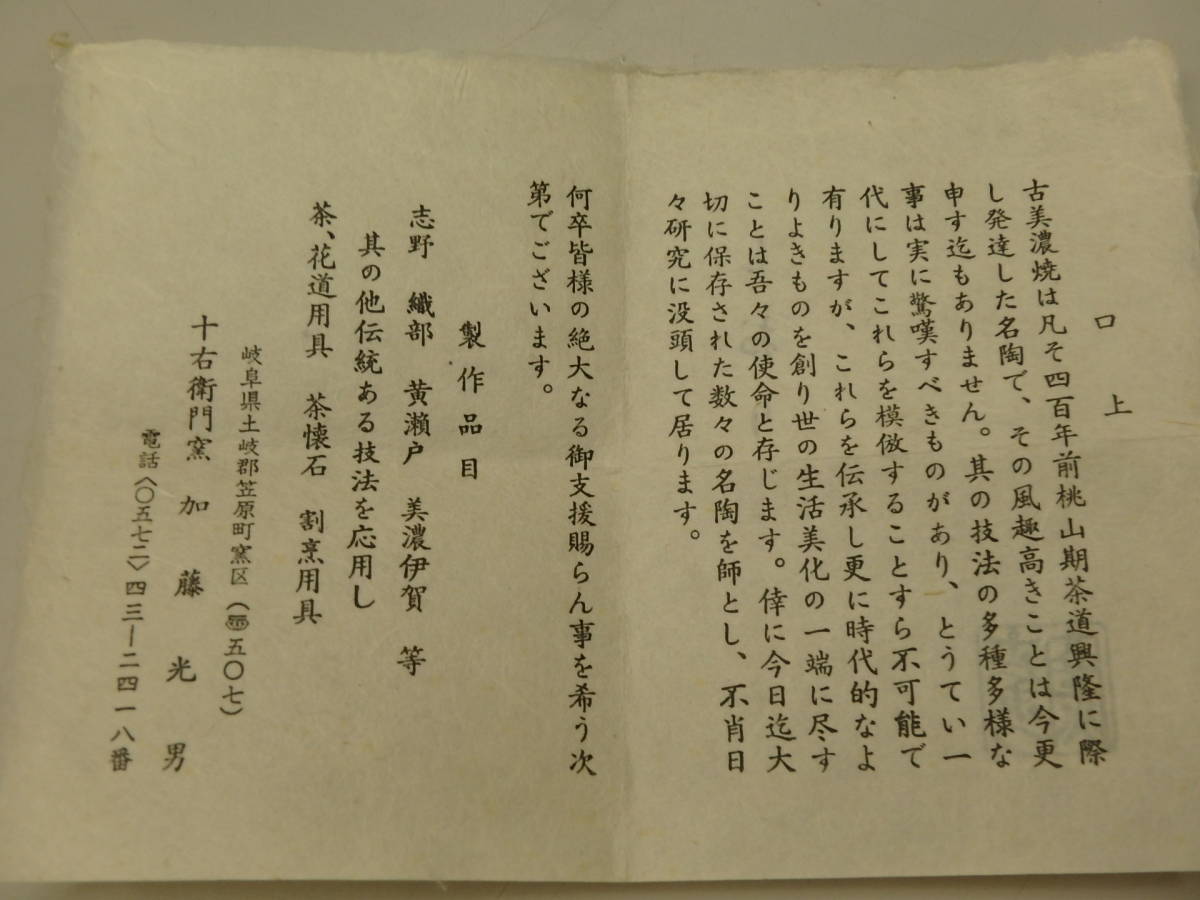 口上
古美濃焼は凡そ四百年前桃山期茶道興隆に際
し発達した名陶で、その風趣高きことは今更
申す迄もありません。其の技法の多種多様な
事は実に驚嘆すべきものがあり、とうてい一
代にしてこれらを模倣することすら不可能で
有りますが、これらを伝承し更に時代的なよ
りよきものを創り世の生活美化の一端に尽す
ことは吾々の使命と存じます。倖に今日迄大
切に保存された数々の名陶を師とし、不肖日
々研究に没頭して居ります。
何卒皆様の絶大なる御支援賜らん事を希う次
第でございます。
製作品目
志野 織部 黄瀬戸 美濃伊賀 等
其の他伝統ある技法を応用し
茶、花道用具 茶懐石 割烹用具
岐阜県土岐郡笠原町窯区(〠五〇七)
十右衛門窯 加藤光男
電話〈〇五七二〉四三―二四一八番